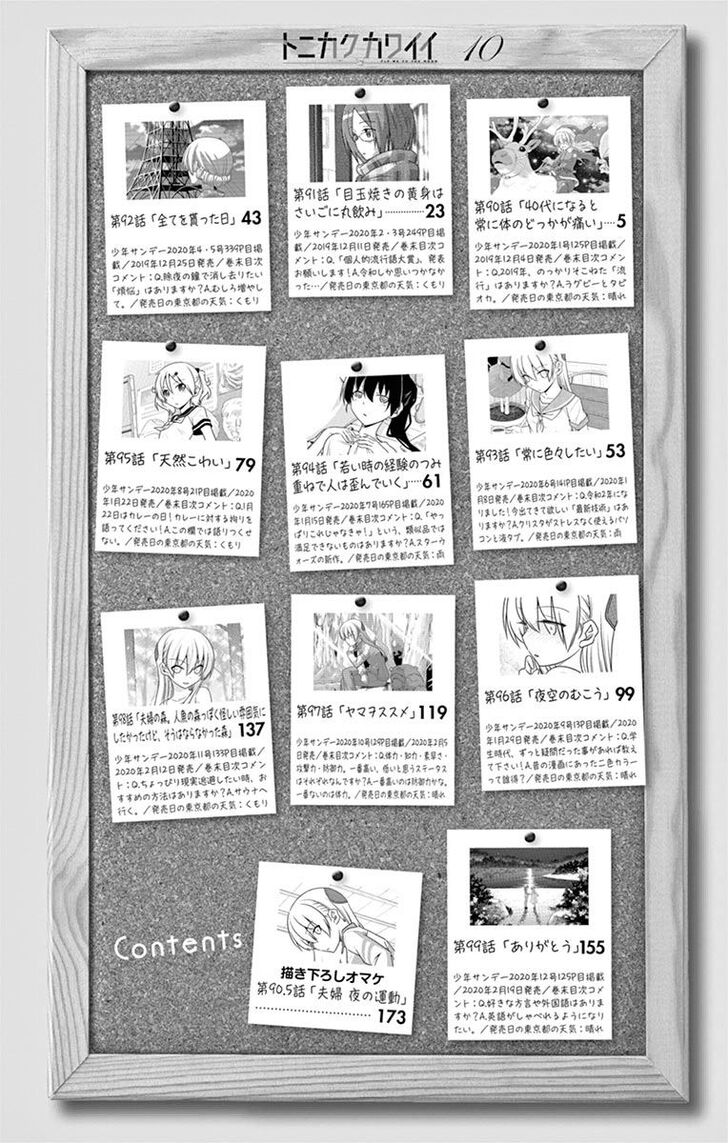 トニカクカワイイ 10
FLY ME TO THE MOON
第90話「40代になると
常に体のどっかが痛い」…5
少年サンデー2020年1号125P目掲
載/2019年12月4日発売/巻末目次
コメント:Q.2019年、のっかりそこねた「流
行」はありますか?A.ラグビーとタピ
オカ。/発売日の東京都の天気:晴れ
第91話「目玉焼きの黄身は
さいごに丸飲み」…………23
少年サンデー2020年2・3号249P目
掲載/2019年12月11日発売/巻末目
次コメント:Q.「個人的流行語大賞」、発表
お願いします!A.令和しか思いつかなか
った…/発売日の東京都の天気:くもり
第92話「全てを貰った日」43
少年サンデー2020年4・5号339P目掲
載/2019年12月25日発売/巻末目次
コメント:Q.除夜の鐘で消し去りたい
「煩悩」はありますか?A.むしろ増やし
て。/発売日の東京都の天気:くもり
第93話「常に色々したい」53
少年サンデー2020年6号141P目掲載/2020年1
月8日発売/巻末目次コメント:Q.令和2年にな
りました!今出てきて欲しい「最新技術」はあり
ますか?A.クリスタがストレスなく使えるパソ
コンと液タブ。/発売日の東京都の天気:雨
第94話「若い時の経験のつみ
重ねで人は歪んでいく」……61
少年サンデー2020年7号165P目掲載/2020
年1月15日発売/巻末目次コメント:Q.「やっ
ぱりこれじゃなきゃ!」という、類似品では
満足できないものはありますか?A.スターウ
ォーズの新作。/発売日の東京都の天気:雨
第95話「天然こわい」79
少年サンデー2020年8号21P目掲載/2020
年1月22日発売/巻末目次コメント:Q.1月
22日はカレーの日!カレーに対する拘りを
語ってください!A.この欄では語りつくせ
ない。/発売日の東京都の天気:くもり
第96話「夜空のむこう」99
少年サンデー2020年9号13P目掲載/2020
年1月29日発売/巻末目次コメント:Q.学
生時代、ずっと疑問だった事があれば教え
て下さい!A.昔の漫画にあった二色カラー
って誰得?/発売日の東京都の天気:晴れ
第97話「ヤマヲススメ」119
少年サンデー2020年10号129P目掲載/2020年2月5
日発売/巻末目次コメント:Q.体力・知力・素早さ・
攻撃力・防御力。一番高い、低いと思うステータス
はそれぞれなんですか?A.一番高いのは防御力かな。
一番ないのは体力。/発売日の東京都の天気:晴れ
第98話「夫婦の森。人魚の森っぽく怪しい雰囲気に
したかったけど、そうはならなかった森」137
少年サンデー2020年11号133P目掲載/
2020年2月12日発売/巻末目次コメント:
Q.ちょっぴり現実逃避したい時、お
すすめの方法はありますか?A.サウナへ
行く。/発売日の東京都の天気:くもり
第99話「ありがとう」155
少年サンデー2020年12号125P目掲載
/2020年2月19日発売/巻末目次コメ
ント:Q.好きな方言や外国語はありま
すか?A.英語がしゃべれるようになり
たい。/発売日の東京都の天気:晴れ
Contents
描き下ろしオマケ
第90.5話「夫婦 夜の運動」
……………………173